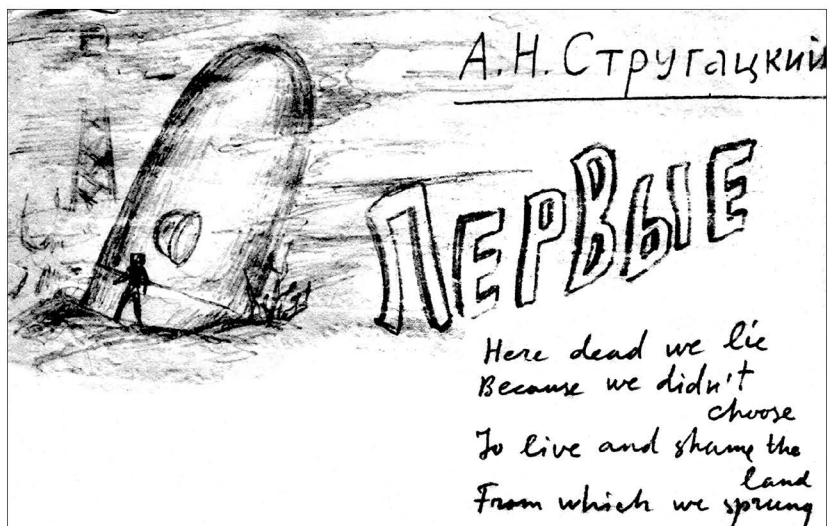 А.Н.Стругацкий
ПЕРВЫЕ
Here dead we lie
Because we didn't
choose
To live and shame the
land
From which we sprung